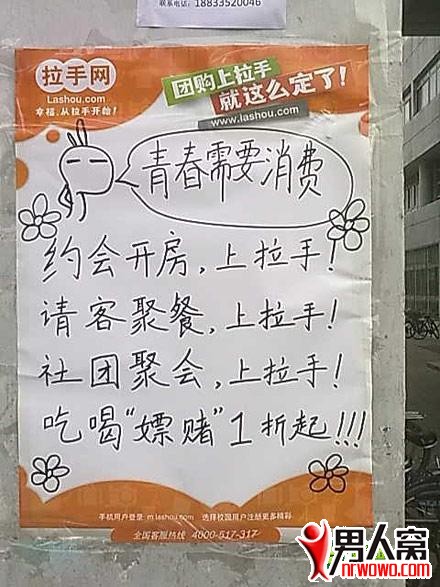 联系电话：18833520046
拉手网
Lashou.com
幸福，从拉手开始！
团购上拉手
就这么定了！
www.lashou.com
青春需要消费
约会开房，上拉手！
请客聚餐，上拉手！
社团聚会，上拉手！
吃喝“嫖赌”1折起!!!
手机用户登录：m.lashou.com 选择校园用户注册更多精彩
全国客服热线 4000-517-317
男人窝
nrwowo.com